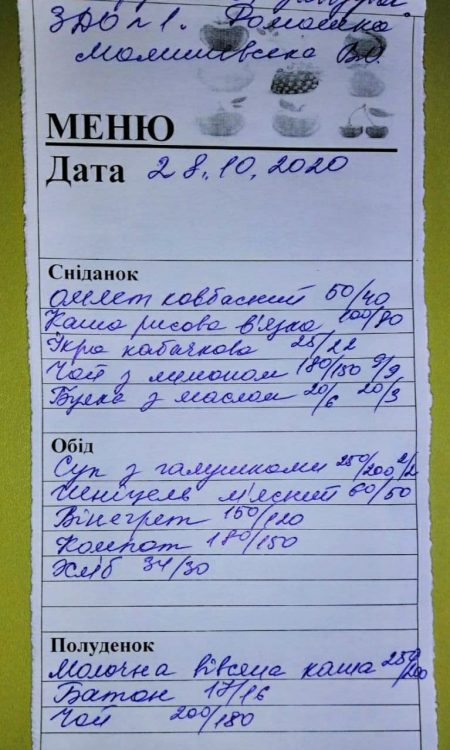 ЗДО №1. "Ромашка"
Малишевська В.О.
МЕНЮ
Дата 28.10.2020
Сніданок
Омлет ковбасний 50/40
Каша рисова в'язка 100/80
Ікра кабачкова 25/22
Чай з лимоном 180/150 9/9
Булка з маслом 20/6 20/3
Обід
Суп з галушками 250/200 2/2
Шніцель м'ясний 60/50
Вінегрет 150/120
Компот 180/150
Хліб 34/30
Полуденок
Молочна вівсяна каша 250/200
Батон 17/16
Чай 200/180